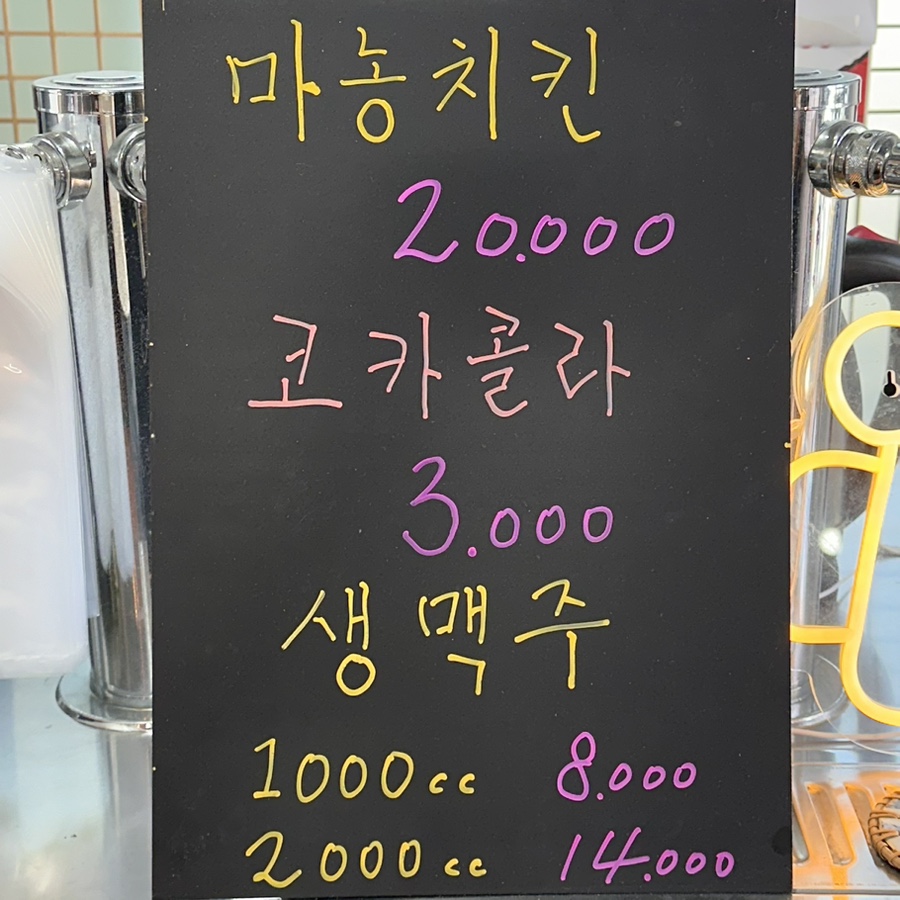 마농치킨
20.000
코카콜라
3.000
생맥주
1000cc 8.000
2000cc 14.000